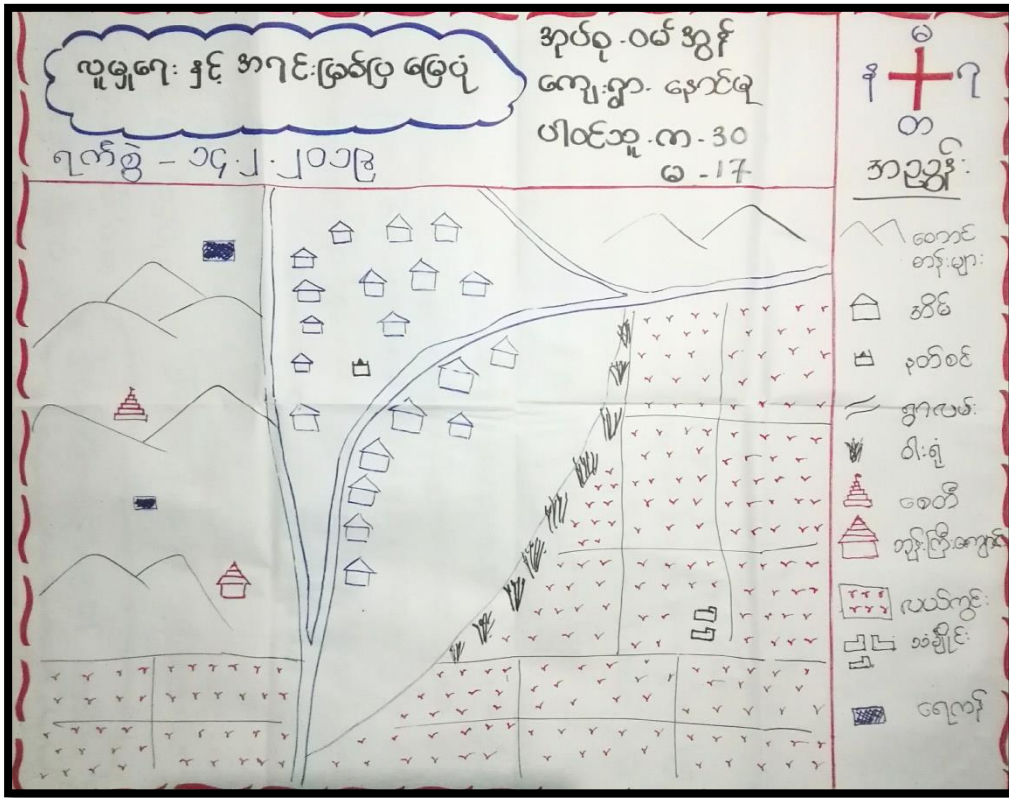 လူမှုရေး နှင့် အရင်းမြစ်ပြ မြေပုံ
ရက်စွဲ - ၁၄.၂.၂၀၁၉
အုပ်စု - ဝမ်အွန်
ကျေးရွာ - နောင်မု
ပါဝင်သူ - က - 30
မ - 17
မ
န
ရ
တ
အညွှန်း
တောင်
တန်းများ
အိမ်
နတ်စင်
ရွာလမ်း
ဝါးရုံ
စေတီ
ဘုန်းကြီးကျောင်း
လယ်ကွင်း
သင်္ချိုင်း
ရေကန်